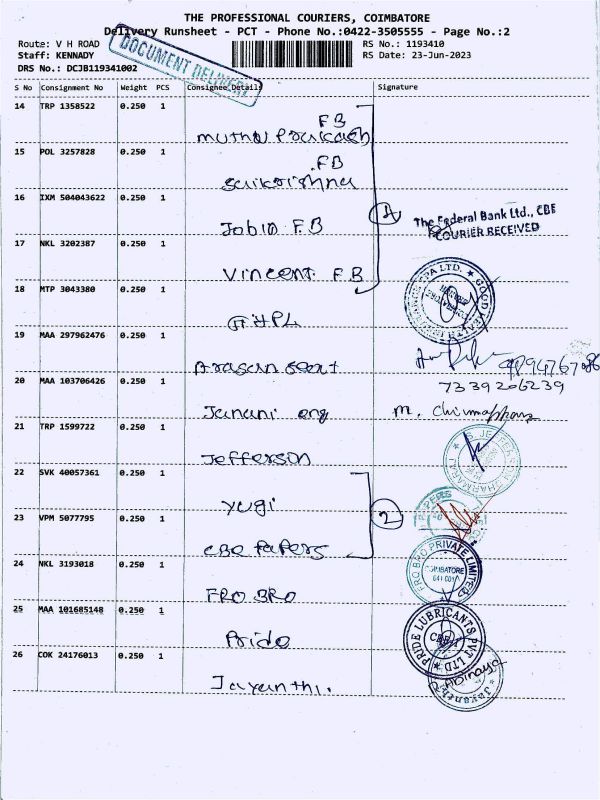 THE PROFESSIONAL COURIERS, COIMBATORE
Delivery Runsheet - PCT - Phone No.:0422-3505555 - Page No.:2
Route: V H ROAD
RS No.: 1193410
Staff: KENNADY
RS Date: 23-Jun-2023
DRS No.: DCJB119341002
DOCUMENT DELIVERY
S No Consignment No Weight PCS Consignee Details Signature
14 TRP 1358522 0.250 1
FB
Muthu Prakash
15 POL 3257828 0.250 1
FB
Saikrishna
16 IXM 504043622 0.250 1
Jobin FB
4
The Federal Bank Ltd., CBE
COURIER RECEIVED
17 NKL 3202387 0.250 1
Vincent FB
18 MTP 3043380 0.250 1
GHPL
TPA LTD. GOOD HEALTH
19 MAA 297962476 0.250 1
Arasan
20 MAA 103706426 0.250 1
7339206239
Janani eng
M.
21 TRP 1599722 0.250 1
Jefferson
22 SVK 40057361 0.250 1
Yugi
2
23 VPM 5077795 0.250 1
CBE Papers
24 NKL 3193018 0.250 1
FRO BRO
FRO BRO PRIVATE LIMITED
COIMBATORE
641 001
25 MAA 101685148 0.250 1
Pride
PRIDE LUBRICANTS PVT LTD
CBE
26 COK 24176013 0.250 1
Jayanthi.